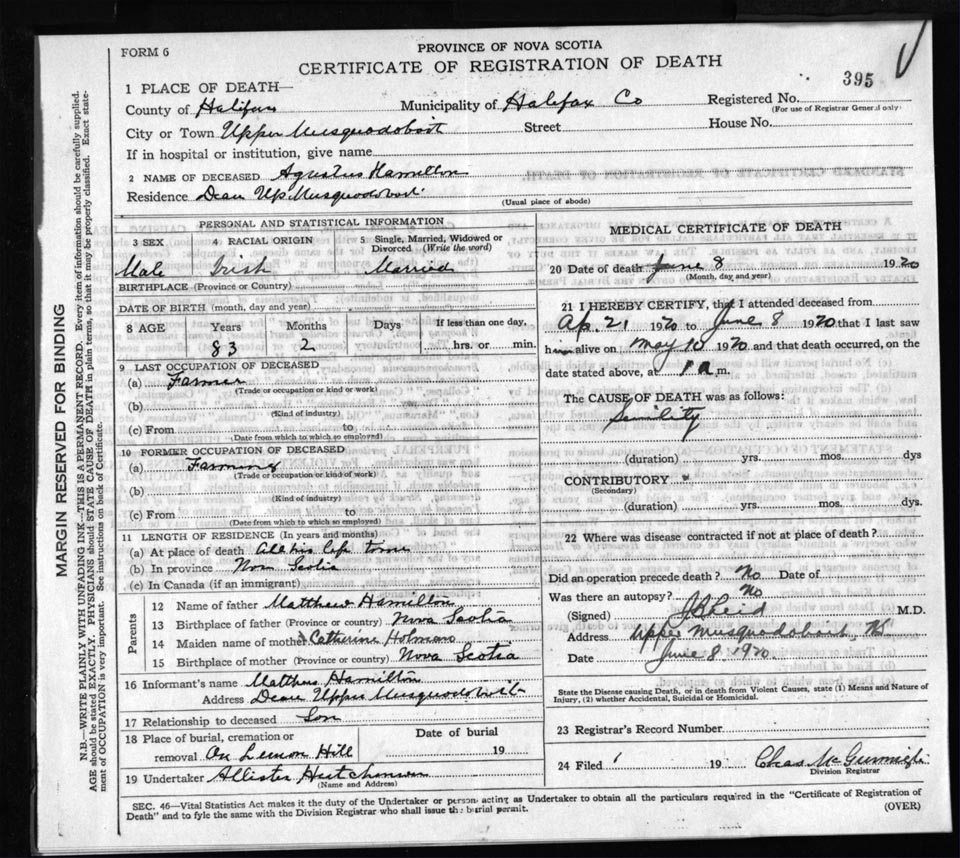 FORM 6
PROVINCE OF NOVA SCOTIA
CERTIFICATE OF REGISTRATION OF DEATH
395
1 PLACE OF DEATH—
County of Halifax Municipality of Halifax Co Registered No.
(For use of Registrar General only)
City or Town Upper Musquodoboit Street House No.
If in hospital or institution, give name
2 NAME OF DECEASED Agustus Hamilton
Residence Dean Up Musquodoboit
(Usual place of abode)
PERSONAL AND STATISTICAL INFORMATION
3 SEX 4 RACIAL ORIGIN 5 Single, Married, Widowed or Divorced (Write the word)
Male Irish Married
BIRTHPLACE (Province or Country)
DATE OF BIRTH (month, day and year)
8 AGE Years Months Days If less than one day,
83 2 hrs. or min.
9 LAST OCCUPATION OF DECEASED
(a) Farmer
(Trade or occupation or kind or work)
(b)
(Kind of industry)
(c) From to
(Date from which to which so employed)
10 FORMER OCCUPATION OF DECEASED
(a) Farming
(Trade or occupation or kind of work)
(b)
(Kind of industry)
(c) From to
(Date from which to which so employed)
11 LENGTH OF RESIDENCE (In years and months)
(a) At place of death All his life time
(b) In province Nova Scotia
(c) In Canada (if an immigrant)
Parents
12 Name of father Matthew Hamilton
13 Birthplace of father (Province or country) Nova Scotia
14 Maiden name of mother Catherine Holman
15 Birthplace of mother (Province or country) Nova Scotia
16 Informant's name Matthew Hamilton
Address Dean Upper Musquodoboit
17 Relationship to deceased Son
18 Place of burial, cremation or Date of burial
removal On Lemon Hill 19
19 Undertaker Allister Hutchinson
(Name and Address)
MEDICAL CERTIFICATE OF DEATH
20 Date of death June 8 1920
(Month, day and year)
21 I HEREBY CERTIFY, that I attended deceased from
Ap. 21 1920 to June 8 1920 that I last saw
him alive on May 10 1920 and that death occurred, on the
date stated above, at 1 a m.
The CAUSE OF DEATH was as follows:
Senility
(duration) yrs. mos. dys
CONTRIBUTORY
(Secondary)
(duration) yrs. mos. dys.
22 Where was disease contracted if not at place of death?
Did an operation precede death? No Date of
Was there an autopsy? No
(Signed) Reid M.D.
Address Upper Musquodoboit, NS
Date June 8, 1920
State the Disease causing Death, or in death from Violent Causes, state (1) Means and Nature of
Injury, (2) whether Accidental, Suicidal or Homicidal.
23 Registrar's Record Number
24 Filed 19 Chas
Division Registrar
SEC. 46—Vital Statistics Act makes it the duty of the Undertaker or person acting as Undertaker to obtain all the particulars required in the "Certificate of Registration of
Death" and to fyle the same with the Division Registrar who shall issue the burial permit. (OVER)
MARGIN RESERVED FOR BINDING
N.B.—WRITE PLAINLY WITH UNFADING INK—THIS IS A PERMANENT RECORD. Every item of information should be carefully supplied.
AGE should be stated EXACTLY. PHYSICIANS should STATE CAUSE OF DEATH in plain terms, so that it may be properly classified. Exact state-
ment of OCCUPATION is very important. See instructions on back of Certificate.